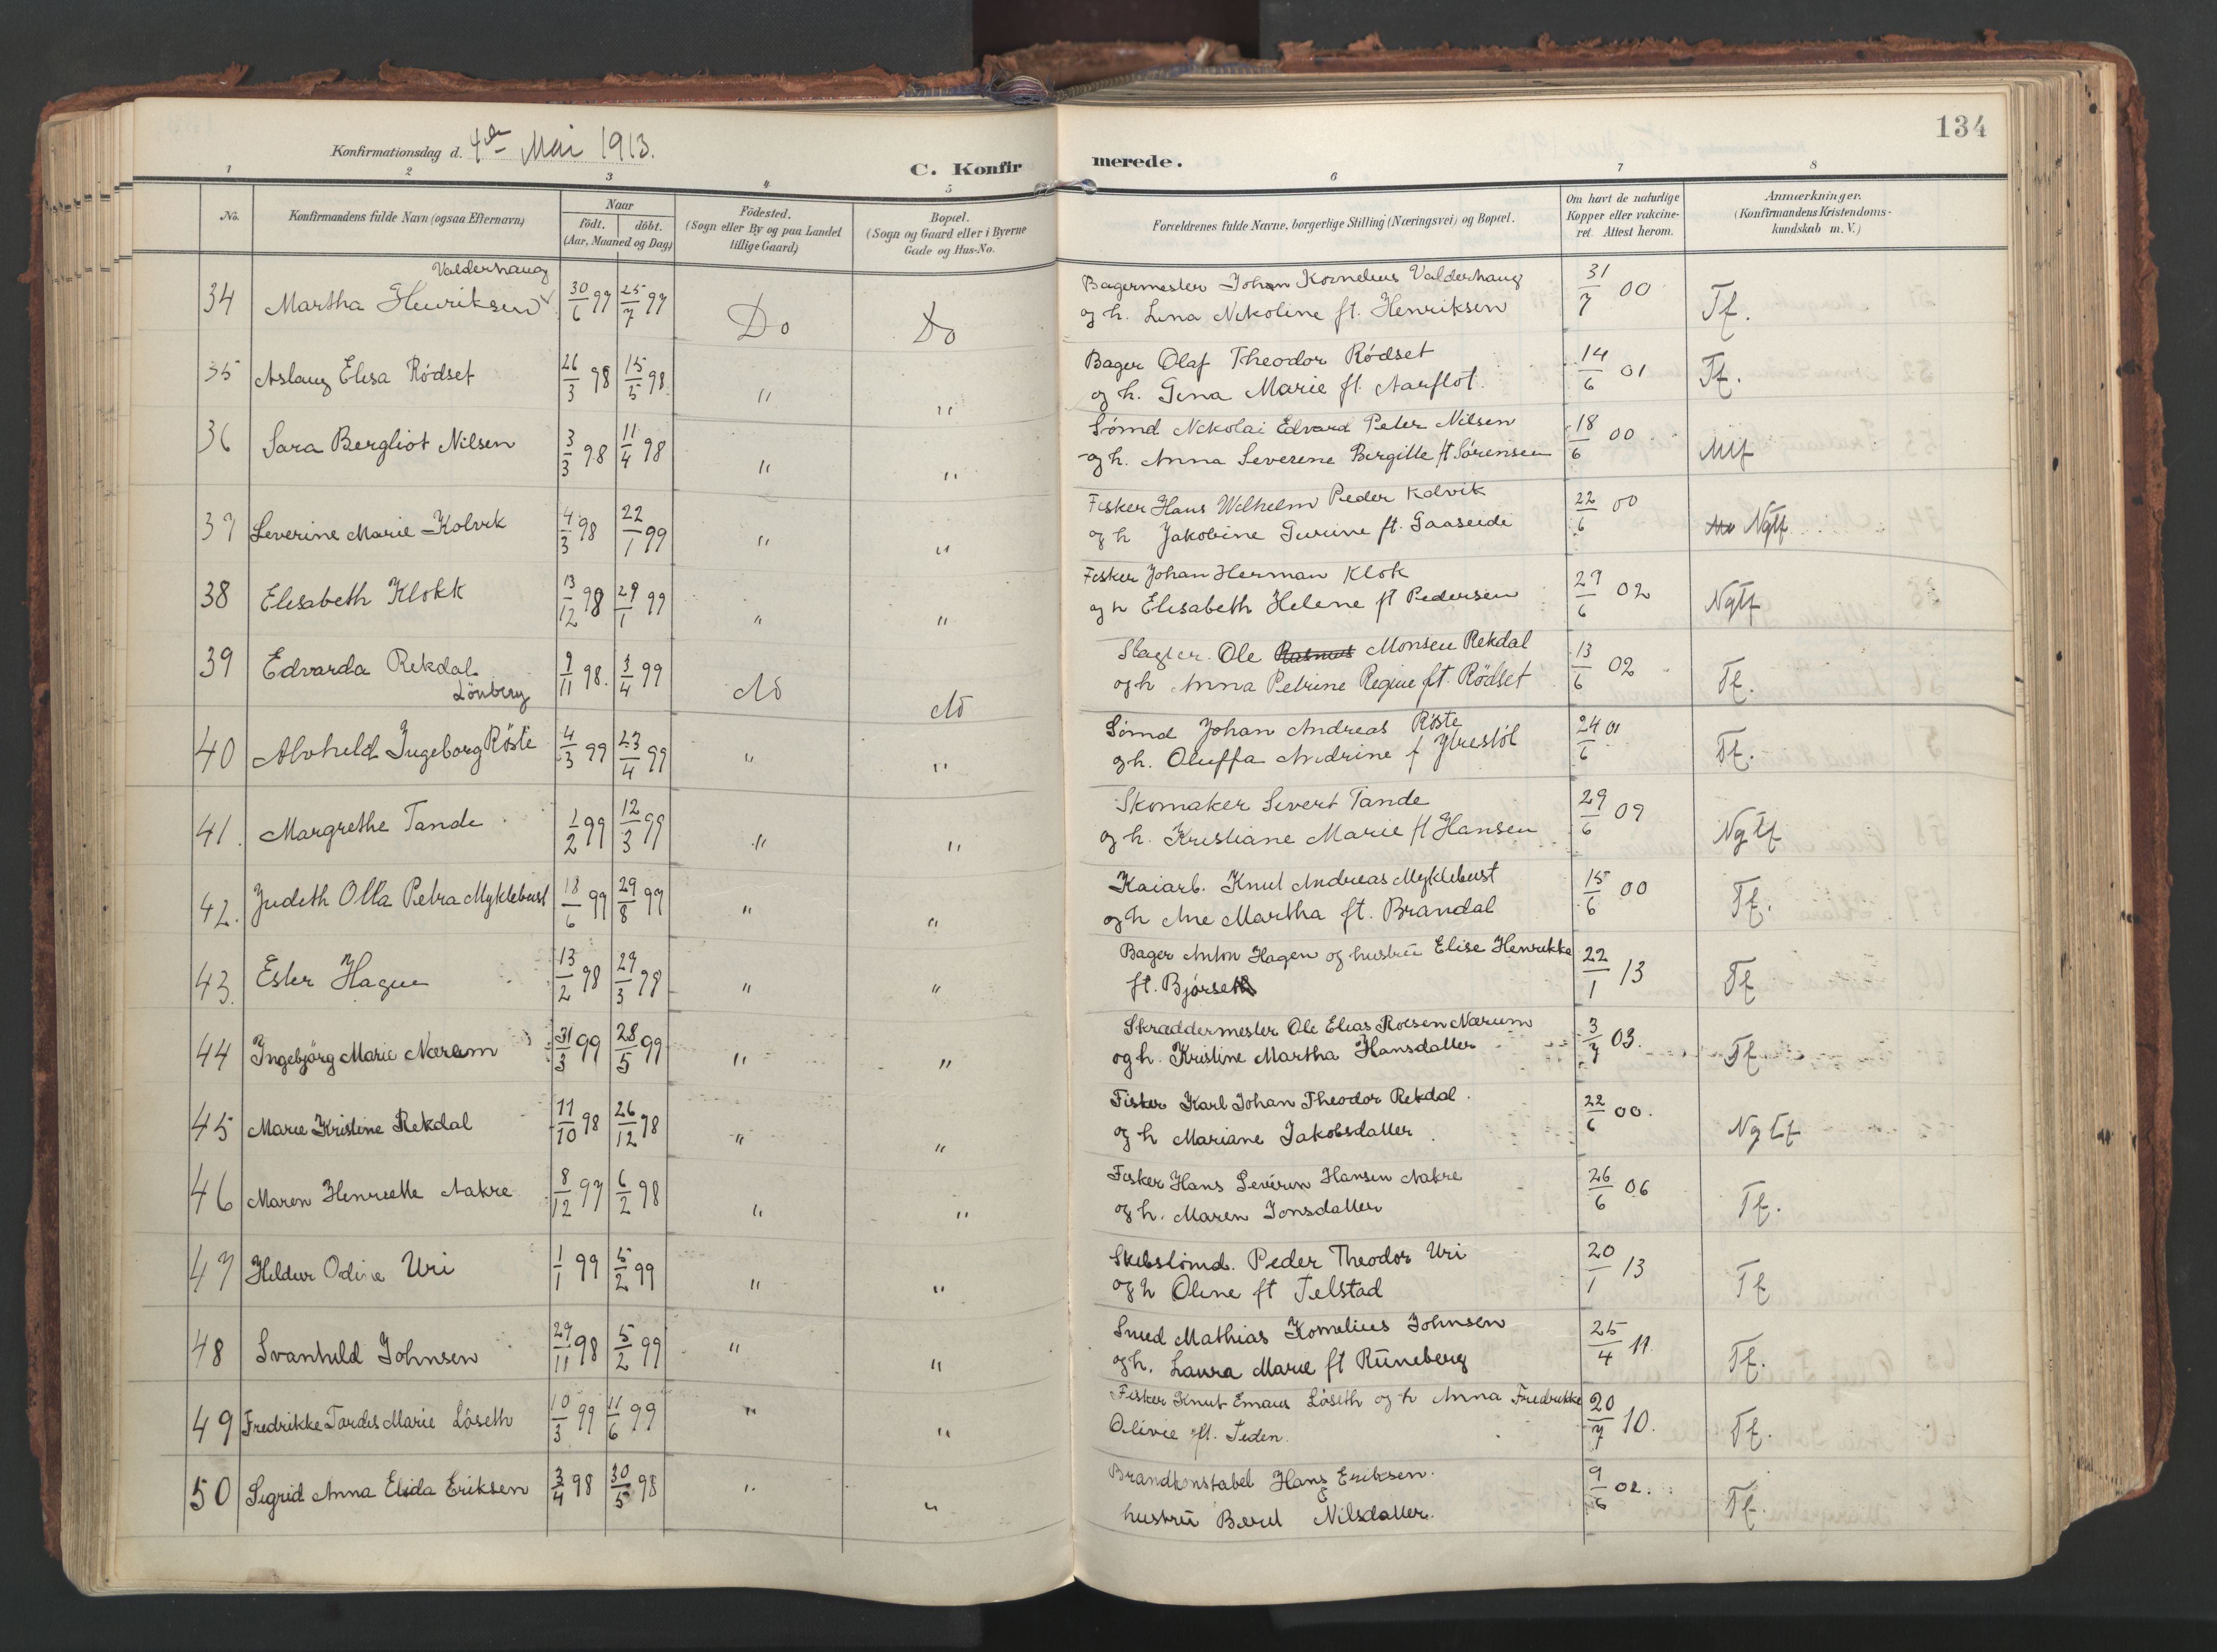 134
Konfirmationsdag d. 4de Mai 1913.
C. Konfirmerede.
1 2 3 4 5 6 7 8
No. Konfirmandens fulde Navn (ogsaa Efternavn) Naar födt. döbt. (Aar, Maaned og Dag) Födested. (Sogn eller By og paa Landet tillige Gaard) Bopæl. (Sogn og Gaard eller i Byerne Gade og Hus-No. Forældrenes fulde Navne, borgerlige Stilling (Næringsvei) og Bopæl. Om havt de naturlige Kopper eller vakcineret. Attest herom. Anmærkninger. (Konfirmandens Kristendomskundskab m. V.)
Valderhaug
34 Martha Henriksen 30/6 97 25/7 97 Do Do Bagermester Johan Kornelius Valderhaug 31/7 00 Tf.
og h. Lina Nikoline ft. Henriksen
35 Aslaug Elisa Rödset 26/3 98 15/5 98. " " Bager Olaf Theodor Rödset 14/6 01 Tf.
og h. Gina Marie ft. Aarflot.
36 Sara Bergliot Nilsen 3/3 98 11/4 98 " " Sömd Nikolai Edvard Peter Nilsen 18/6 00 Mtf
og h. Anna Severine Birgitte ft Sörensen
37 Severine Marie Kolvik 4/3 98 22/1 99 " " Fisker Hans Wilhelm Peder Kolvik 22/6 00 Ngtf
og h Jakobine Gurine ft. Gaaseide
38 Elisabeth Klokk 13/12 98 29/1 99 " " Fisker Johan Herman Klok 29/6 02 Ngtf
og h Elisabeth Helene ft Pedersen
39 Edvarda Rekdal 9/11 98. 3/4 99 do do Slagter. Ole Rasmus Monsen Rekdal 13/6 02 Tf.
Lönberg og h Anna Petrine Regine ft. Rödset
40 Alvhild Ingeborg Röste 4/3 99 23/4 99 " " Sömd Johan Andreas Röste 24/6 01 Tf.
og h. Oluffa Andrine f Ytrestöl
41. Margrethe Tande 1/2 99 12/3 99 " " Skomaker Sivert Tande 29/6 09 Ngtf
og h. Kristiane Marie ft Hansen
42. Judith Olla Petra Myklebust 18/6 99 29/8 97 " " Kaiarb. Knut Andreas Myklebust 15/6 00 Tf.
og h Ane Martha ft. Brandal
43. Ester Hagen 13/2 98 29/3 98 " " Bager Anton Hagen og hustru Elise Henrikke 22/1 13 Tf
ft. Bjørseth
44 Ingebjörg Marie Nærem 31/3 99 28/5 99 " " Skræddermester Ole Elias Roesen Nærum 3/7 03. Tf
og h. Kristine Martha Hansdatter
45 Marie Kristine Rekdal 11/10 98 26/12 98 " " Fisker Karl Johan Theodor Rekdal. 22/6 00. Ngtf
og h Mariane Jakobsdatter
46 Maren Henriette Aakre 8/12 97 6/2 98 " " Fisker Hans Severin Hansen Aakre 26/6 06 Tf.
og h. Maren Jonsdatter
47 Hildur Odine Uri 1/1 99 5/2 99 " " Skibstömd. Peder Theodor Uri 20/1 13 Tf
og h Oline ft Jelstad
48 Svanhild Johnsen 29/11 98 5/2 99 " " Smed Mathias Kornelius Johnsen 25/4 11. Tf.
og h. Laura Marie ft Runeberg
49 Fredrikke Tordis Marie Löseth 10/3 99 11/6 99 " " Fisker Knut Emaus Löseth og h Anna Fredrikke 20/7 10. Tf.
Olivie ft. Teden.
50 Sigrid Anna Elida Eriksen 3/4 98 30/5 98 " " Brandkonstabel Hans Eriksen. 9/6 02. Tf.
& hustru Beret Nilsdatter.